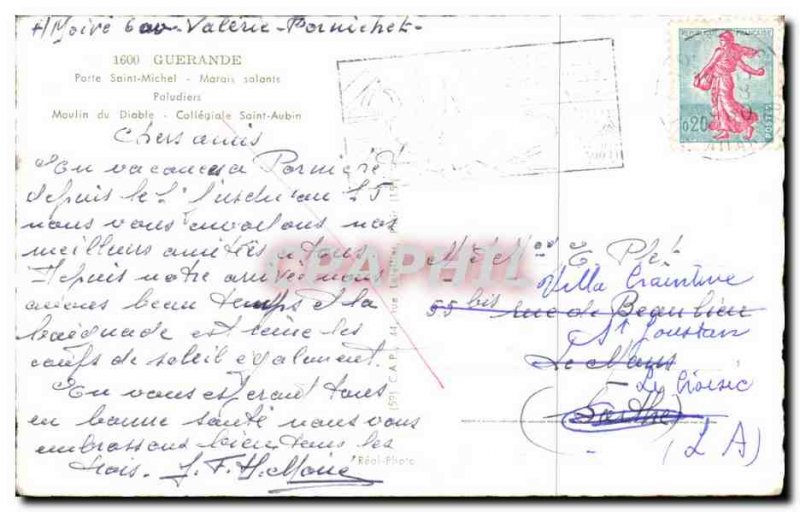 H Moiré 6 av. Valérie - Pornichet -
1600 GUERANDE
Porte Saint-Michel - Marais salants
Paludiers
Moulin du Diable - Collégiale Saint-Aubin
Chers amis
En vacances a Pornichet
depuis le 2 jusqu'au 25
nous vous envoyons nos
meilleurs amitiés a tous
Depuis notre arrivée nous
avions beau temps et la
baignade est bonne les
coups de soleil également.
En vous esperant tous
en bonne santé nous vous
embrassons bien tous les
trois. J. F. H. Moiré
Réal-Photo
REPUBLIQUE FRANÇAISE
0,20
POSTES
CPAPHIL
(59) C.A.P. 44, rue
M. et Mad E. Plé
Villa Craintive
55 bis rue de Beaulieu
St Goustan
Le Mans
Le Croisic
Sarthe
(L A)